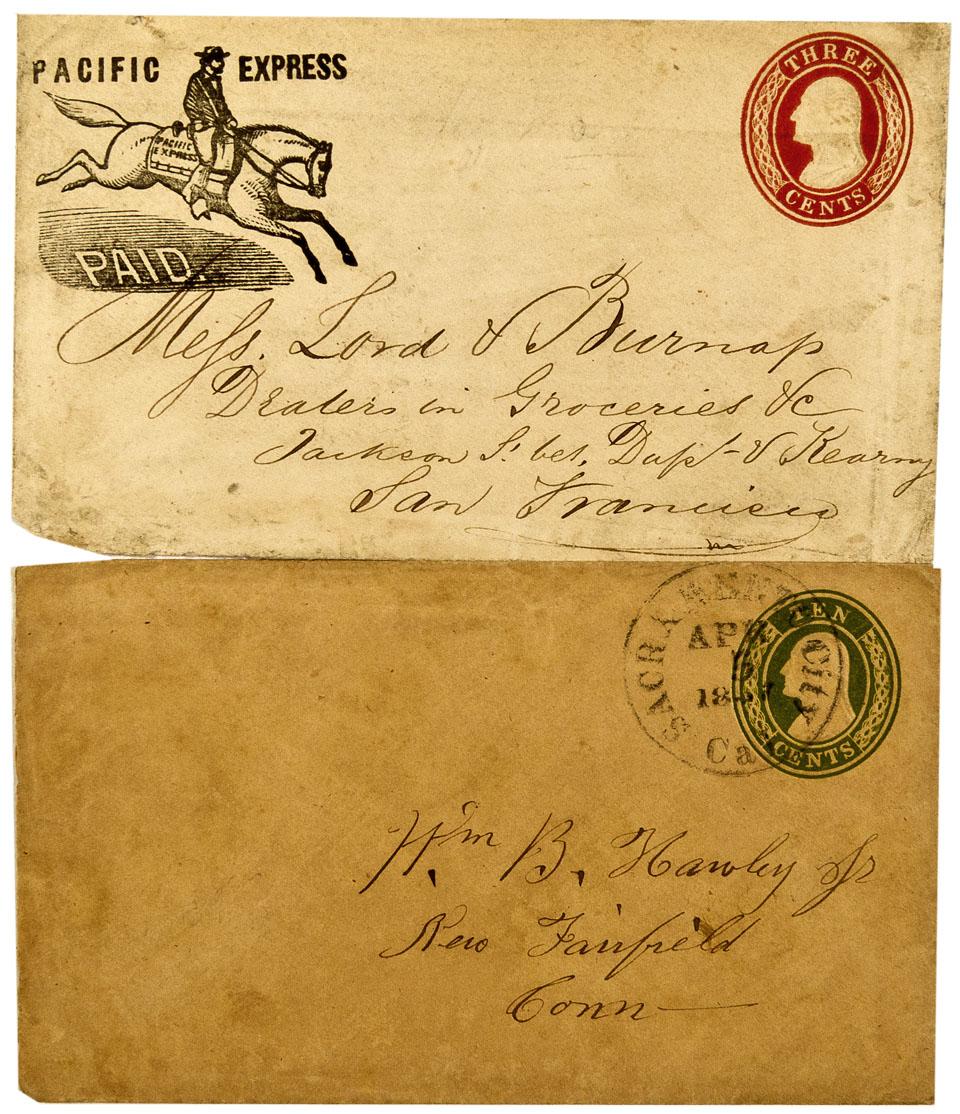 PACIFIC EXPRESS
THREE
CENTS
PACIFIC
EXPRESS
PAID.
Mess. Lord & Burnap
Dealers in Groceries &c
Jackson St bet. Dupt & Kearny
San Francisco
SACRAMENTO City
APR
Ca
TEN
CENTS
Wm B. Hawley Jr
New Fairfield
Conn